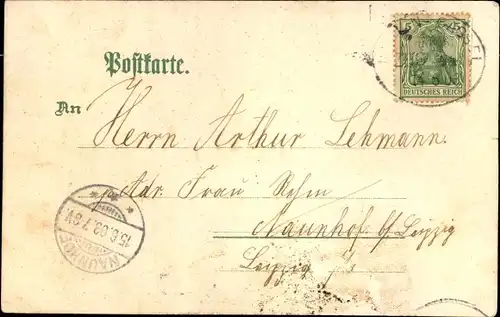 5 5
DEUTSCHES REICH
Postkarte.
An
Herrn Arthur Lehmann.
p. Adr. Frau
Naunhof b/Leipzig
Leipzig
NAUNHOF
15.6.03.7-8V.